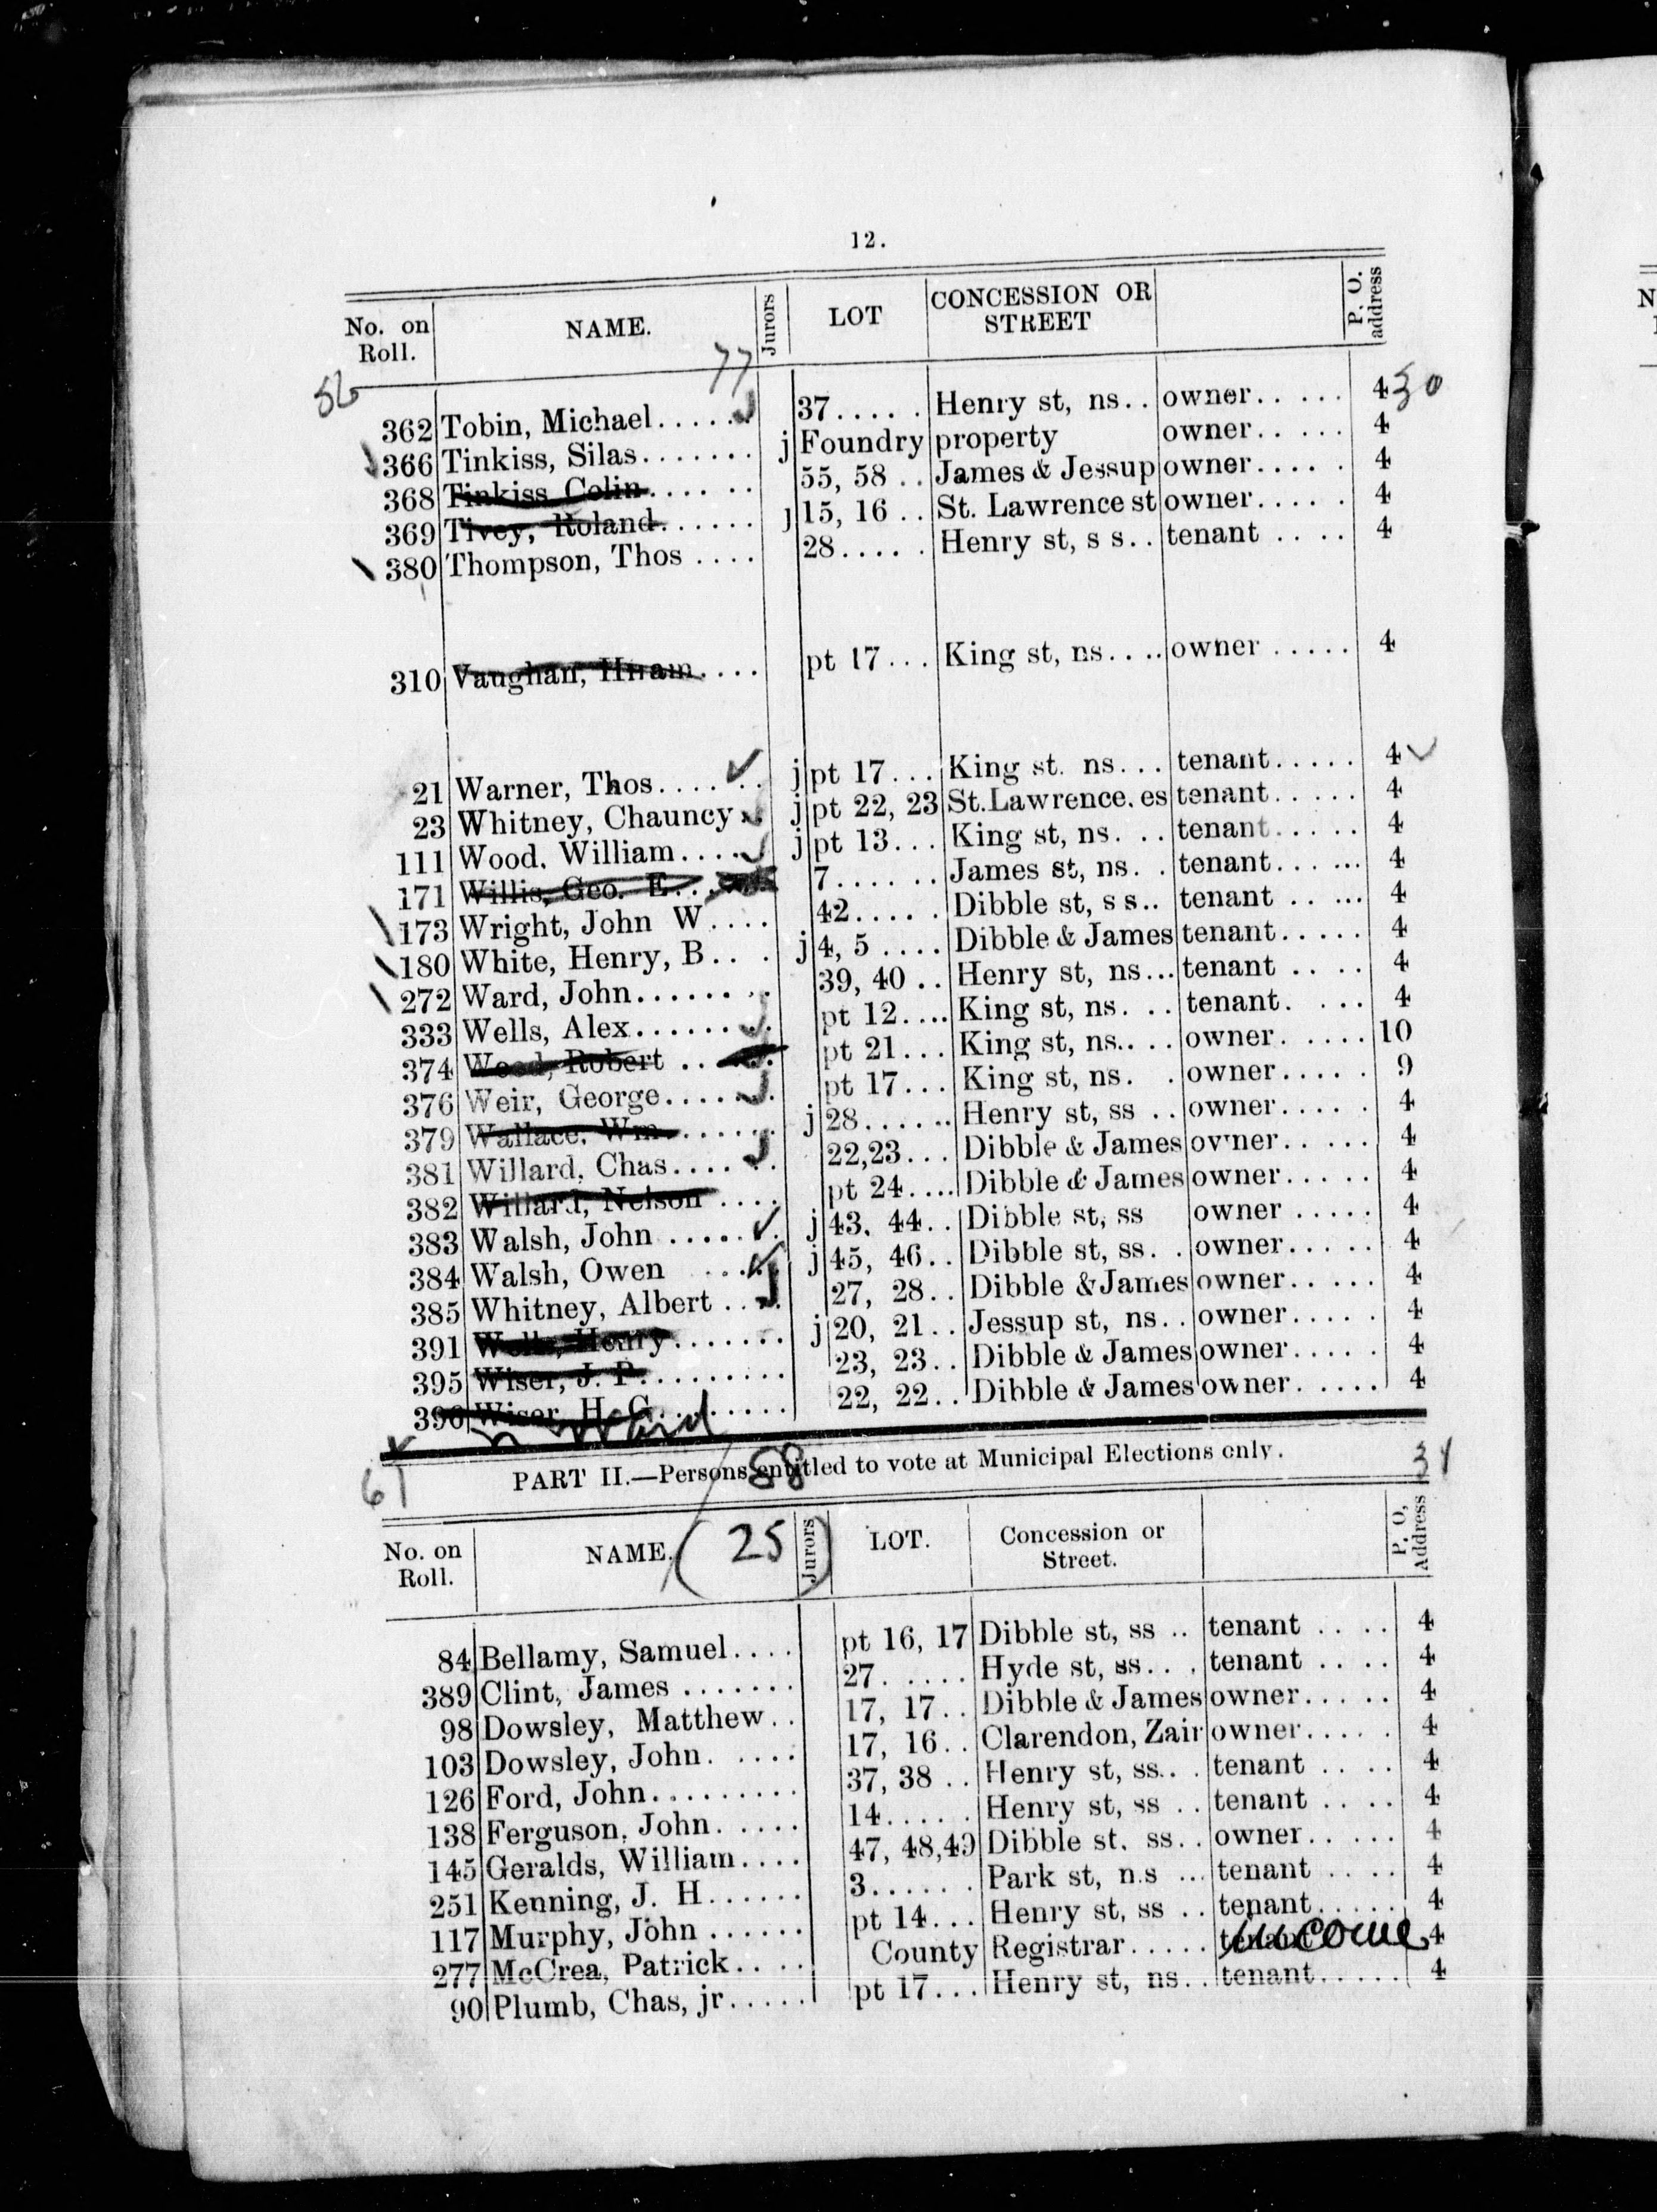 12.
No. on Roll. NAME. Jurors LOT CONCESSION OR STREET P. O. address
77
56
362 Tobin, Michael...... 37..... Henry st, ns.. owner..... 4 30
366 Tinkiss, Silas....... j Foundry property owner..... 4
368 Tinkiss Colin...... 55, 58 .. James & Jessup owner..... 4
369 Tivey, Roland...... j 15, 16 .. St. Lawrence st owner..... 4
380 Thompson, Thos .... 28..... Henry st, s s.. tenant .... 4
310 Vaughan, Hiram.... pt 17... King st, ns.... owner ..... 4
21 Warner, Thos...... j pt 17... King st. ns... tenant..... 4
23 Whitney, Chauncy .. j pt 22, 23 St.Lawrence. es tenant..... 4
111 Wood. William.... j pt 13... King st, ns. .. tenant..... 4
171 Willis, Geo. E... 7...... James st, ns. . tenant...... 4
173 Wright, John W.... 42..... Dibble st, s s.. tenant ..... 4
180 White, Henry, B... j 4, 5 .... Dibble & James tenant..... 4
272 Ward, John....... 39, 40 .. Henry st, ns... tenant .... 4
333 Wells, Alex....... pt 12.... King st, ns. .. tenant. ... 4
374 Wood, Robert ... pt 21... King st, ns.... owner. .... 10
376 Weir, George..... pt 17... King st, ns. . owner..... 9
379 Wallace, Wm....... j 28...... Henry st, ss .. owner..... 4
381 Willard, Chas..... 22,23... Dibble & James owner..... 4
382 Willard, Nelson .... pt 24.... Dibble & James owner..... 4
383 Walsh, John ...... j 43, 44.. Dibble st, ss owner ..... 4
384 Walsh, Owen .... j 45, 46.. Dibble st, ss. . owner..... 4
385 Whitney, Albert ... 27, 28.. Dibble & James owner..... 4
391 Wells, Henry....... j 20, 21.. Jessup st, ns. . owner..... 4
395 Wiser, J. P......... 23, 23.. Dibble & James owner..... 4
396 Wiser, H. G........ 22, 22.. Dibble & James owner..... 4
61 PART II.—Persons entitled to vote at Municipal Elections only. 31
88
(25)
No. on Roll. NAME. Jurors LOT. Concession or Street. P. O, Address
84 Bellamy, Samuel.... pt 16, 17 Dibble st, ss .. tenant .... 4
389 Clint, James ....... 27. .... Hyde st, ss... tenant .... 4
98 Dowsley, Matthew.. 17, 17.. Dibble & James owner..... 4
103 Dowsley, John. .... 17, 16.. Clarendon, Zair owner..... 4
126 Ford, John......... 37, 38 .. Henry st, ss.. . tenant .... 4
138 Ferguson, John. .... 14..... Henry st, ss .. tenant .... 4
145 Geralds, William.... 47, 48,49 Dibble st. ss.. owner..... 4
251 Kenning, J. H...... 3...... Park st, n.s ... tenant .... 4
117 Murphy, John ...... pt 14... Henry st, ss .. tenant..... 4
277 McCrea, Patrick.... County Registrar..... tenant income 4
90 Plumb, Chas, jr..... pt 17... Henry st, ns.. tenant..... 4